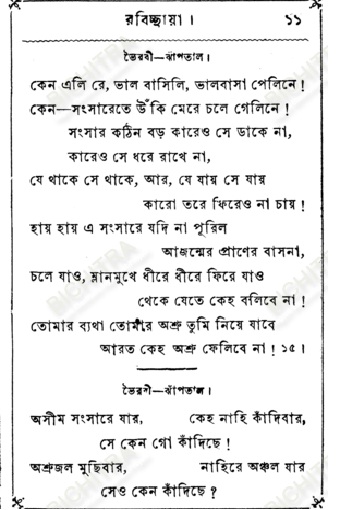 রবিচ্ছায়া। ১১
ভৈরবী—ঝাঁপতাল।
কেন এলি রে, ভাল বাসিলি, ভালবাসা পেলিনে!
কেন—সংসারেতে উঁকি মেরে চলে গেলিনে!
সংসার কঠিন বড় কারেও সে ডাকে না,
কারেও সে ধরে রাখে না,
যে থাকে সে থাকে, আর, যে যায় সে যায়
কারো তরে ফিরেও না চায়!
হায় হায় এ সংসারে যদি না পূরিল
আজন্মের প্রাণের বাসনা,
চলে যাও, ম্লানমুখে ধীরে ধীরে ফিরে যাও
থেকে যেতে কেহ বলিবে না!
তোমার ব্যথা তোমার অশ্রু তুমি নিয়ে যাবে
আরত কেহ অশ্রু ফেলিবে না! ১৫।
ভৈরবী—ঝাঁপতাল।
অসীম সংসারে যার, কেহ নাহি কাঁদিবার,
সে কেন গো কাঁদিছে!
অশ্রুজল মুছিবার, নাহিরে অঞ্চল যার
সেও কেন কাঁদিছে?
BICHITRA